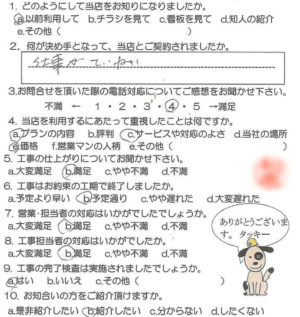 1. どのようにして当店をお知りになりましたか。
a.以前利用して b.チラシを見て c.看板を見て d.知人の紹介
e.その他 ( )
2. 何が決め手となって、当店とご契約されましたか。
仕事がていねい
3.お問合せを頂いた際の電話対応についてご感想をお聞かせ下さい。
不満 ← 1・2・3・4・5 →満足
4. 当店を利用するにあたって重視したことは何ですか。
a.プランの内容 b.評判 c.サービスや対応のよさ d.当社の場所
e.価格 f.営業マンの人柄 e.その他 ( )
5. 工事の仕上がりについてお聞かせ下さい。
a.大変満足 b.満足 c.やや不満 d.不満
6. 工事はお約束の工期で終了しましたか。
a.予定より早い b.予定通り c.やや遅れた d.大変遅れた
7. 営業・担当者の対応はいかがでしたでしょうか。
a.大変満足 b.満足 c.やや不満 d.不満
8. 工事担当者の対応はいかがでしたか。
a.大変満足 b.満足 c.やや不満 d.不満
9. 工事の完了検査は実施されましたでしょうか。
a.はい b.いいえ c.その他 ( )
10. お知合いの方をご紹介頂けますか。
a.是非紹介したい b.紹介したい c.分からない d.したくない
ありがとうございま
す。 タッキー